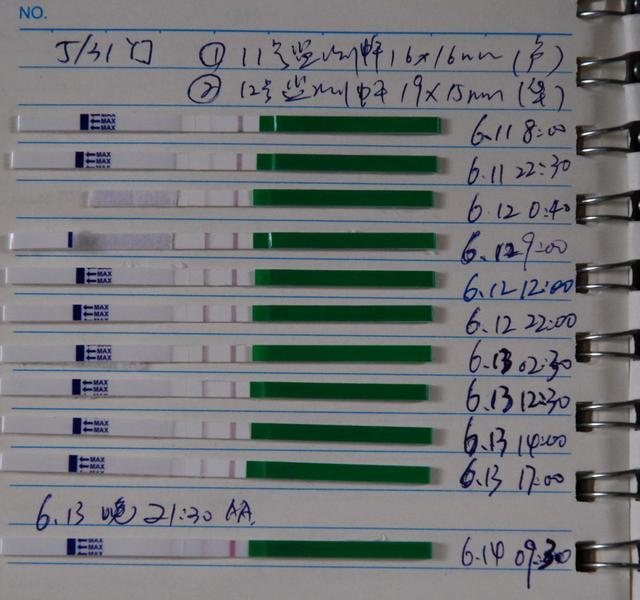 NO.
5/31 ① 11号监测 16x16mm
② 12号监测 19x15mm
MAX
MAX
MAX
6.11 8:00
MAX
MAX
MAX
6.11 22:30
6.12 0:40
6.12 9:00
MAX
MAX
MAX
6.12 12:00
MAX
MAX
MAX
6.12 22:00
MAX
MAX
MAX
6.13 02:30
MAX
MAX
MAX
6.13 12:30
MAX
MAX
MAX
6.13 14:00
MAX
MAX
MAX
6.13 17:00
6.13 晚 21:30 AA.
MAX
MAX
MAX
6.14 09:30